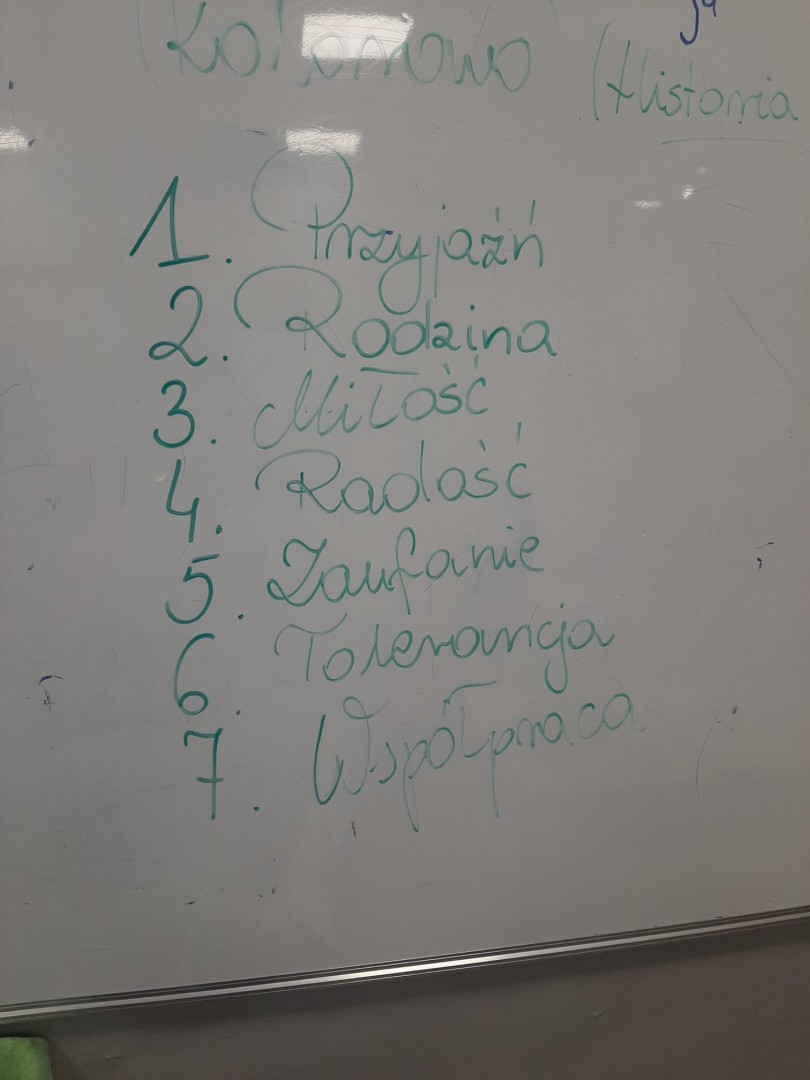 (Historia
1. Przyjaźń
2. Rodzina
3. Miłość
4. Radość
5. Zaufanie
6. Tolerancja
7. Współpraca